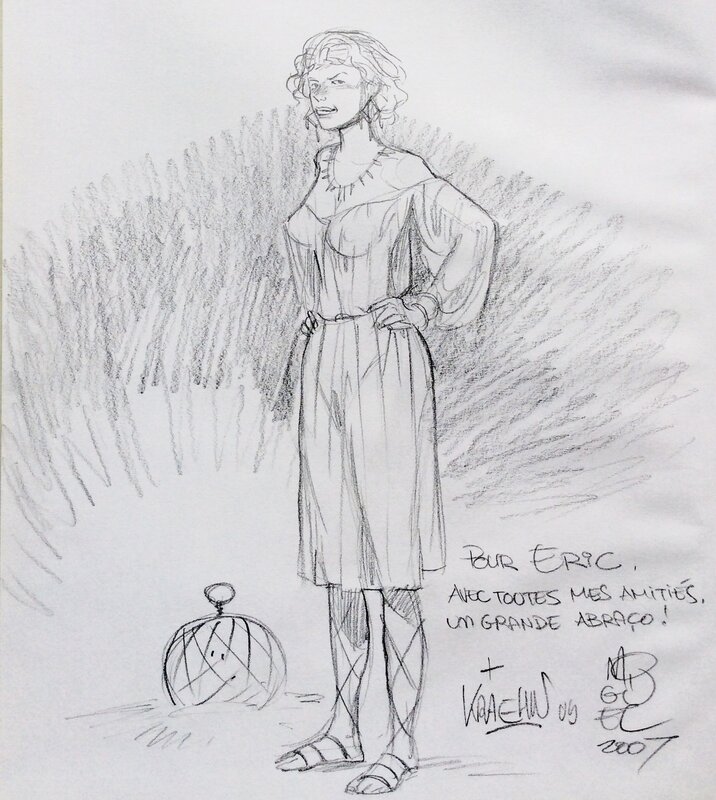 POUR ERIC,
AVEC TOUTES MES AMITIÉS,
UM GRANDE ABRAÇO !
+
KRAEHN 09
2007